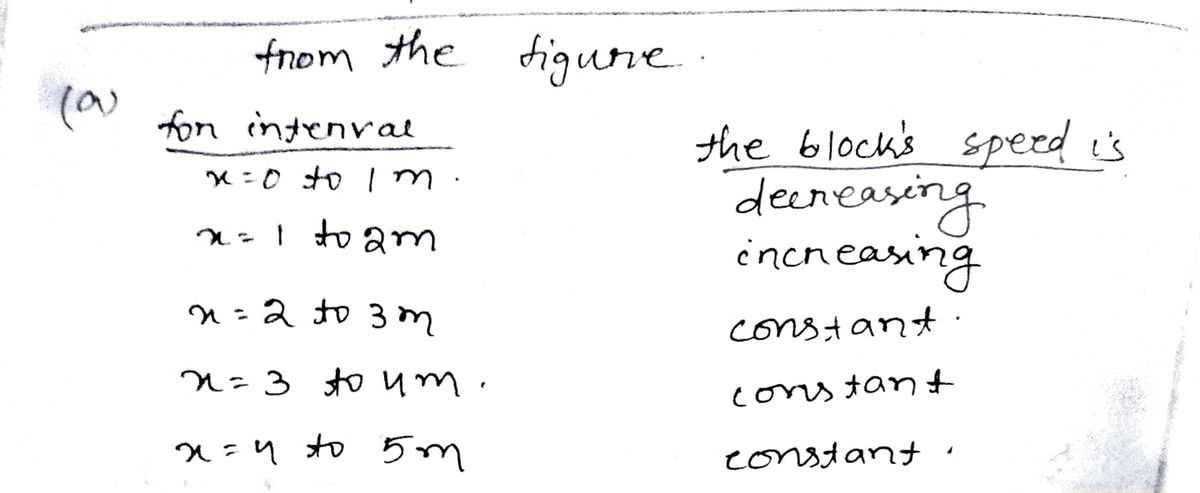 from the figure.
(a)
for interval the block's speed is
x=0 to 1 m. decreasing
x=1 to 2m increasing
x=2 to 3m constant.
x=3 to 4m. constant
x=4 to 5m constant.